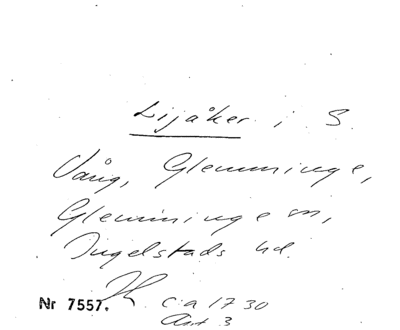 Lijåker i S.
Vång, Glemminge,
Glemminge sn,
Ingelstads hd.
Nr 7557. ca 1730
Akt 3